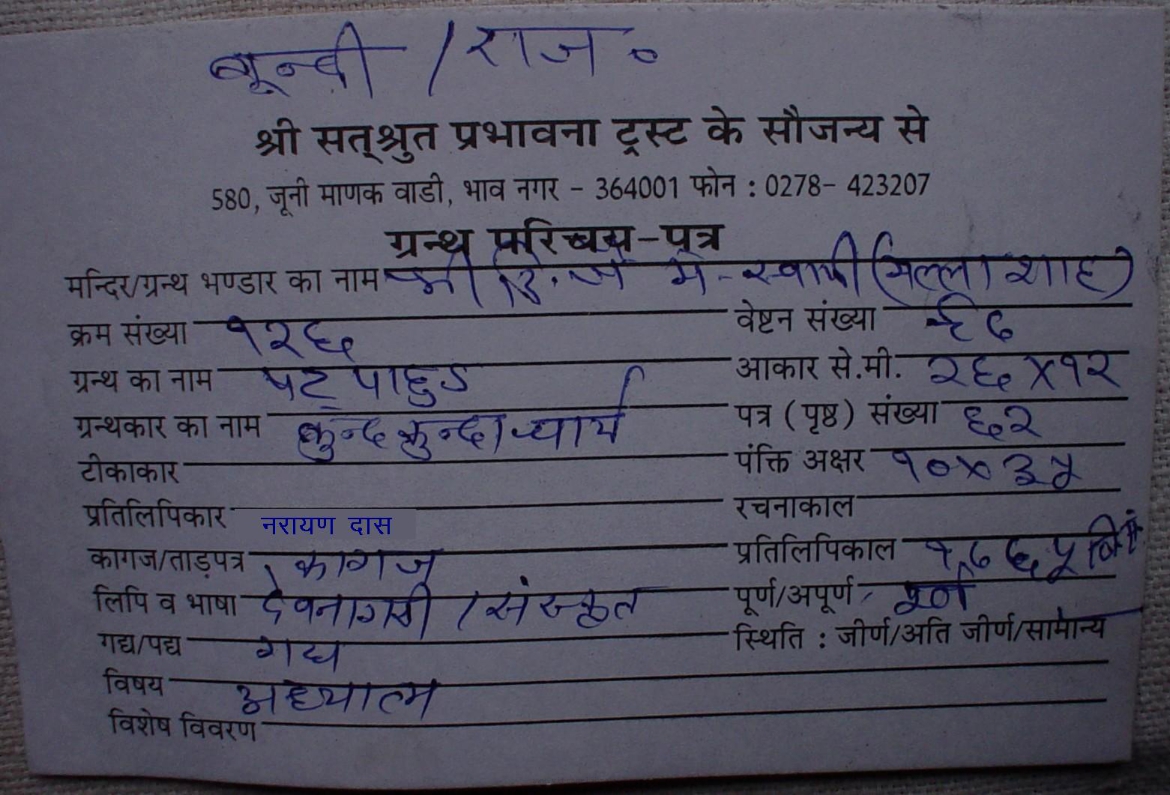 बून्दी / राज०
श्री सत्‌श्रुत प्रभावना ट्रस्ट के सौजन्य से
580, जूनी माणक वाडी, भाव नगर - 364001 फोन : 0278- 423207
ग्रन्थ परिचय-पत्र
मन्दिर/ग्रन्थ भण्डार का नाम श्री दि. जै मं- स्वामी (मल्ला शाह)
क्रम संख्या १२६ वेष्टन संख्या
ग्रन्थ का नाम षट् पाहुड आकार से.मी. २६ X १२
ग्रन्थकार का नाम कुन्दकुन्दाचार्य पत्र (पृष्ठ) संख्या ६२
टीकाकार पंक्ति अक्षर १० X ३५
प्रतिलिपिकार नरायण दास रचनाकाल
कागज/ताड़पत्र कागज प्रतिलिपिकाल
लिपि व भाषा देवनागरी / संस्कृत पूर्ण/अपूर्ण पूर्ण
गद्य/पद्य गद्य स्थिति : जीर्ण/अति जीर्ण/सामान्य
विषय अध्यात्म
विशेष विवरण